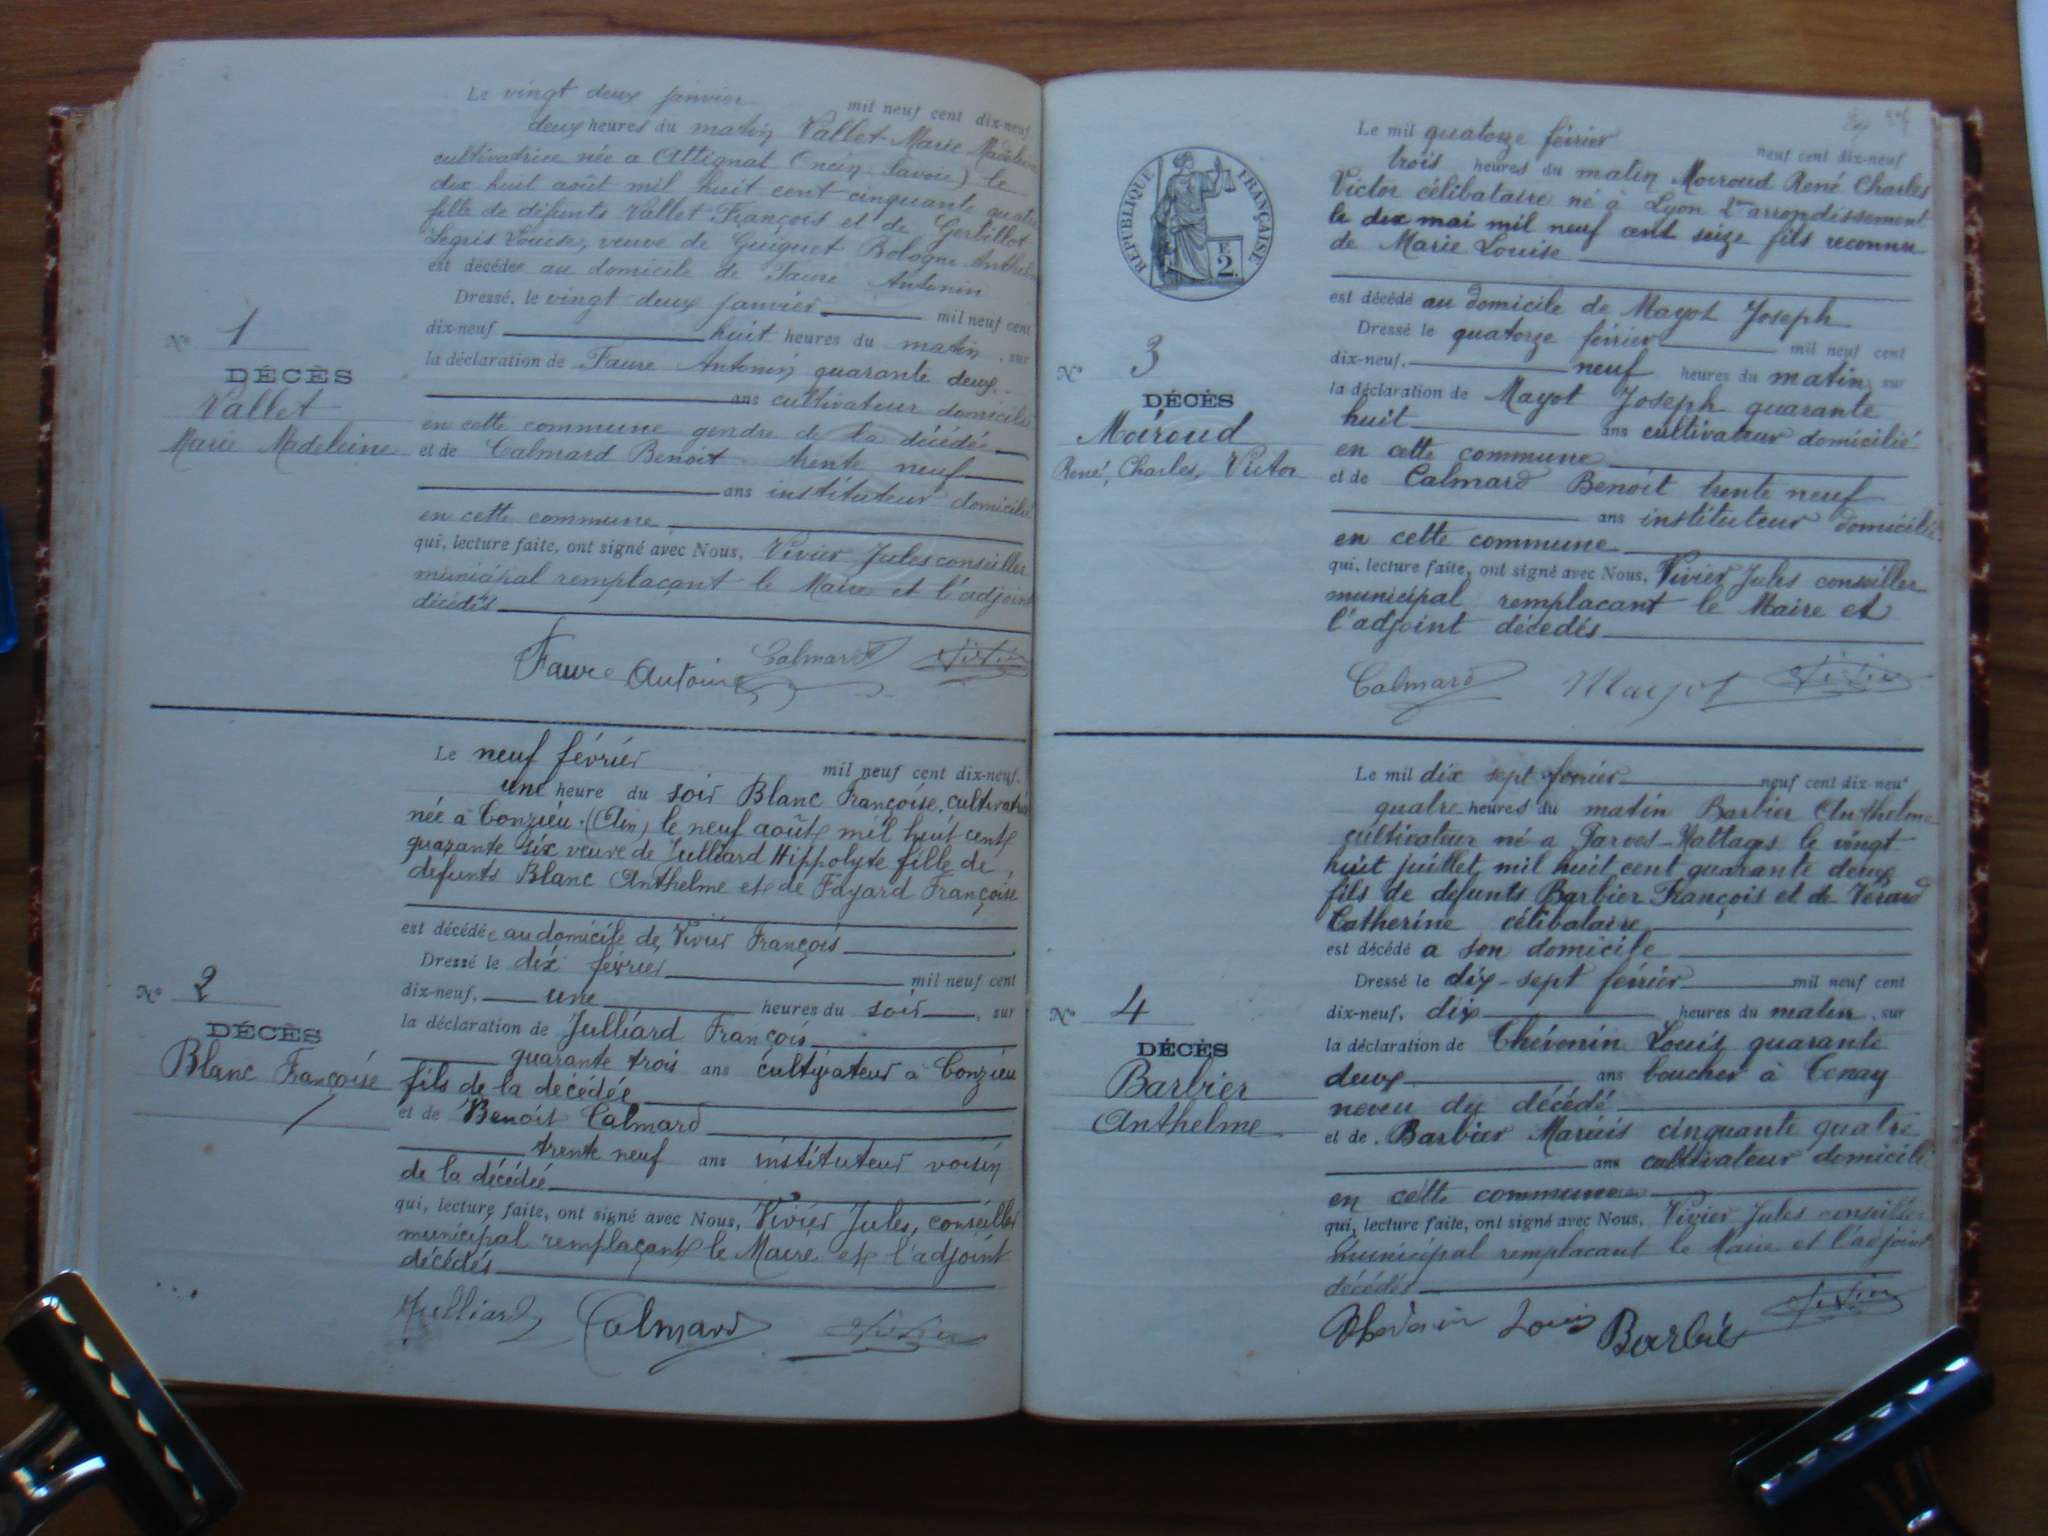 Le vingt deux janvier mil neuf cent dix-neuf
deux heures du matin Vallet Marie Madeleine
cultivatrice née a Attignat Oncin (Savoie) le
dix huit août mil huit cent cinquante quatre
fille de défunts Vallet François et de Gerbillot
Legris Louise, veuve de Guiguet Bologne Anthelme
est décédée au domicile de Faure Antonin
Dressé, le vingt deux janvier mil neuf cent
dix-neuf huit heures du matin, sur
la déclaration de Faure Antonin quarante deux
ans cultivateur domicilié
en cette commune gendre de la décédée
et de Calmard Benoit trente neuf
ans instituteur domicilié
en cette commune
qui, lecture faite, ont signé avec Nous, Vivier Jules conseiller
municipal remplaçant le Maire et l'adjoint
décédés
Faure Antonin Calmard Vivier
N° 1
DÉCÈS
Vallet
Marie Madeleine
Le neuf février mil neuf cent dix-neuf,
une heure du soir Blanc Françoise, cultivatrice
née à Conzieu (Ain) le neuf août mil huit cent
quarante six veuve de Julliard Hippolyte fille de
defunts Blanc Anthelme et de Fayard Françoise
est décédée au domicile de Vivier François
Dressé le dix février mil neuf cent
dix-neuf, une heures du soir, sur
la déclaration de Julliard François
quarante trois ans cultivateur à Conzieu
fils de la decédée
et de Benoit Calmard
trente neuf ans instituteur voisin
de la décédée
qui, lecture faite, ont signé avec Nous, Vivier Jules, conseiller
municipal remplaçant le Maire et l'adjoint
décédés
Julliard Calmard Vivier
N° 2
DÉCÈS
Blanc Françoise
RÉPUBLIQUE FRANÇAISE
E
2.
Le mil quatorze février neuf cent dix-neuf
trois heures du matin Moiroud René Charles
Victor célibataire né à Lyon 2me arrondissement
le dix mai mil neuf cent seize fils reconnu
de Marie Louise
est décédé au domicile de Mayot Joseph
Dressé le quatorze février mil neuf cent
dix-neuf, neuf heures du matin, sur
la déclaration de Mayot Joseph quarante
huit ans cultivateur domicilié
en cette commune
et de Calmard Benoit trente neuf
ans instituteur domicilié
en cette commune
qui, lecture faite, ont signé avec Nous, Vivier Jules conseiller
municipal remplacant le Maire et
l'adjoint décedés
Calmard Mayot Vivier
N° 3
DÉCÈS
Moiroud
René, Charles, Victor
Le mil dix sept février neuf cent dix-neuf
quatre heures du matin Barbier Anthelme
cultivateur né a Parves-Nattages le vingt
huit juillet mil huit cent quarante deux
fils de defunts Barbier François et de
Catherine célibataire
est décédé a son domicile
Dressé le dix-sept février mil neuf cent
dix-neuf, dix heures du matin, sur
la déclaration de Thévenin Louis quarante
deux ans boucher à Tenay
neveu du décédé
et de Barbier Marius cinquante quatre
ans cultivateur domicilié
en cette commune
qui, lecture faite, ont signé avec Nous, Vivier Jules conseiller
municipal remplacant le Maire et l'adjoint
décédés
Thévenin Louis Barbier Vivier
N° 4
DÉCÈS
Barbier
Anthelme